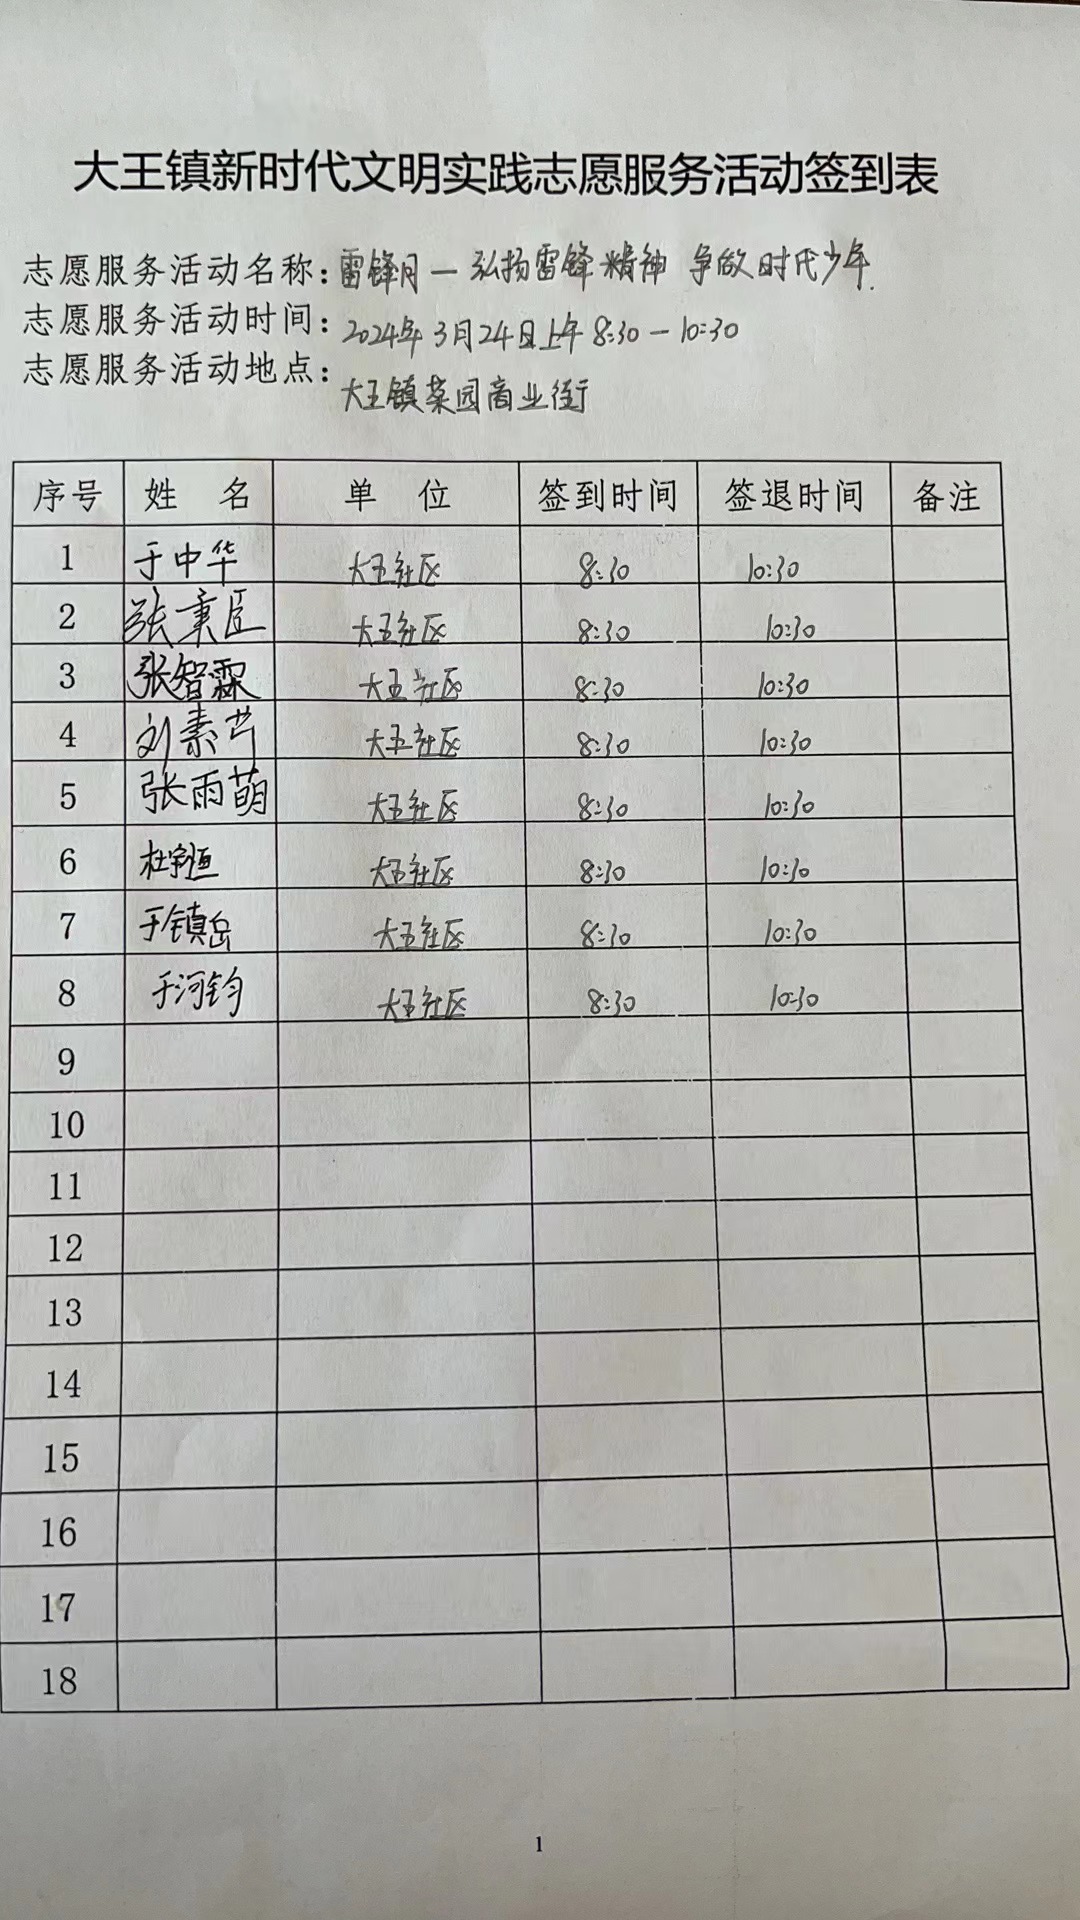 大王镇新时代文明实践志愿服务活动签到表
志愿服务活动名称：雷锋月—弘扬雷锋精神 争做时代少年.
志愿服务活动时间：2024年3月24日上午8:30—10:30
志愿服务活动地点：大王镇菜园商业街
序号 姓 名 单 位 签到时间 签退时间 备注
1 于中华 大王社区 8:30 10:30
2 张秉臣 大王社区 8:30 10:30
3 张智霖 大王社区 8:30 10:30
4 刘素芹 大王社区 8:30 10:30
5 张雨萌 大王社区 8:30 10:30
6 杜宇恒 大王社区 8:30 10:30
7 于镇岳 大王社区 8:30 10:30
8 于河钧 大王社区 8:30 10:30
9
10
11
12
13
14
15
16
17
18
1